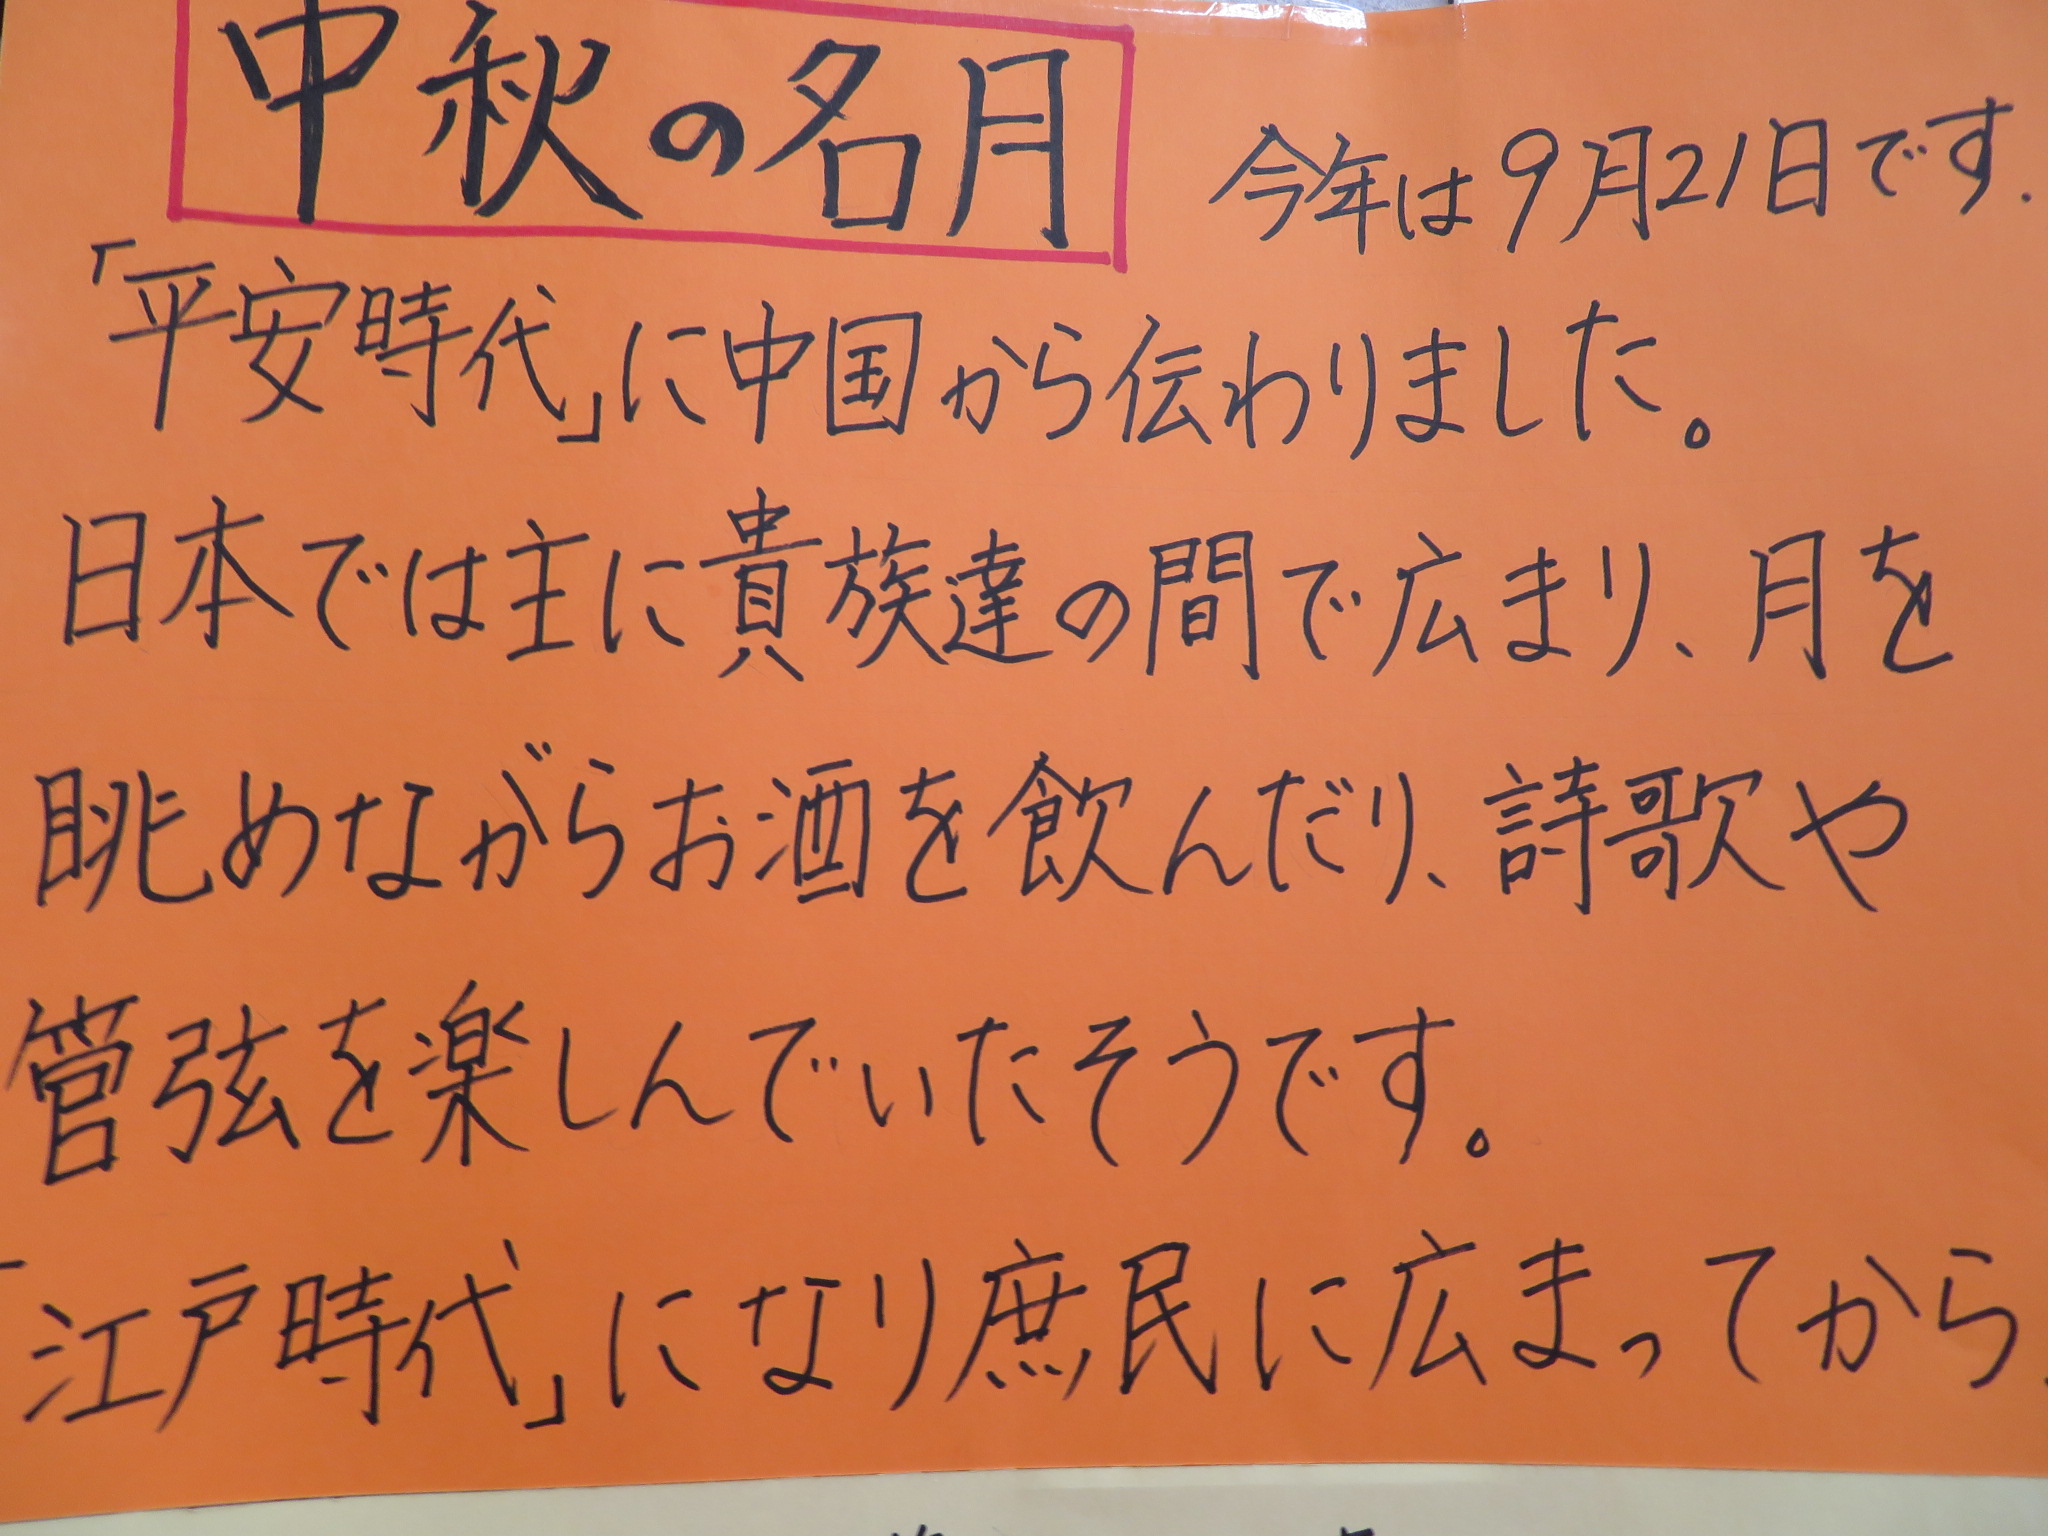 中秋の名月 今年は9月21日です.
「平安時代」に中国から伝わりました。
日本では主に貴族達の間で広まり、月を
眺めながらお酒を飲んだり、詩歌や
管弦を楽しんでいたそうです。
「江戸時代」になり庶民に広まってから、